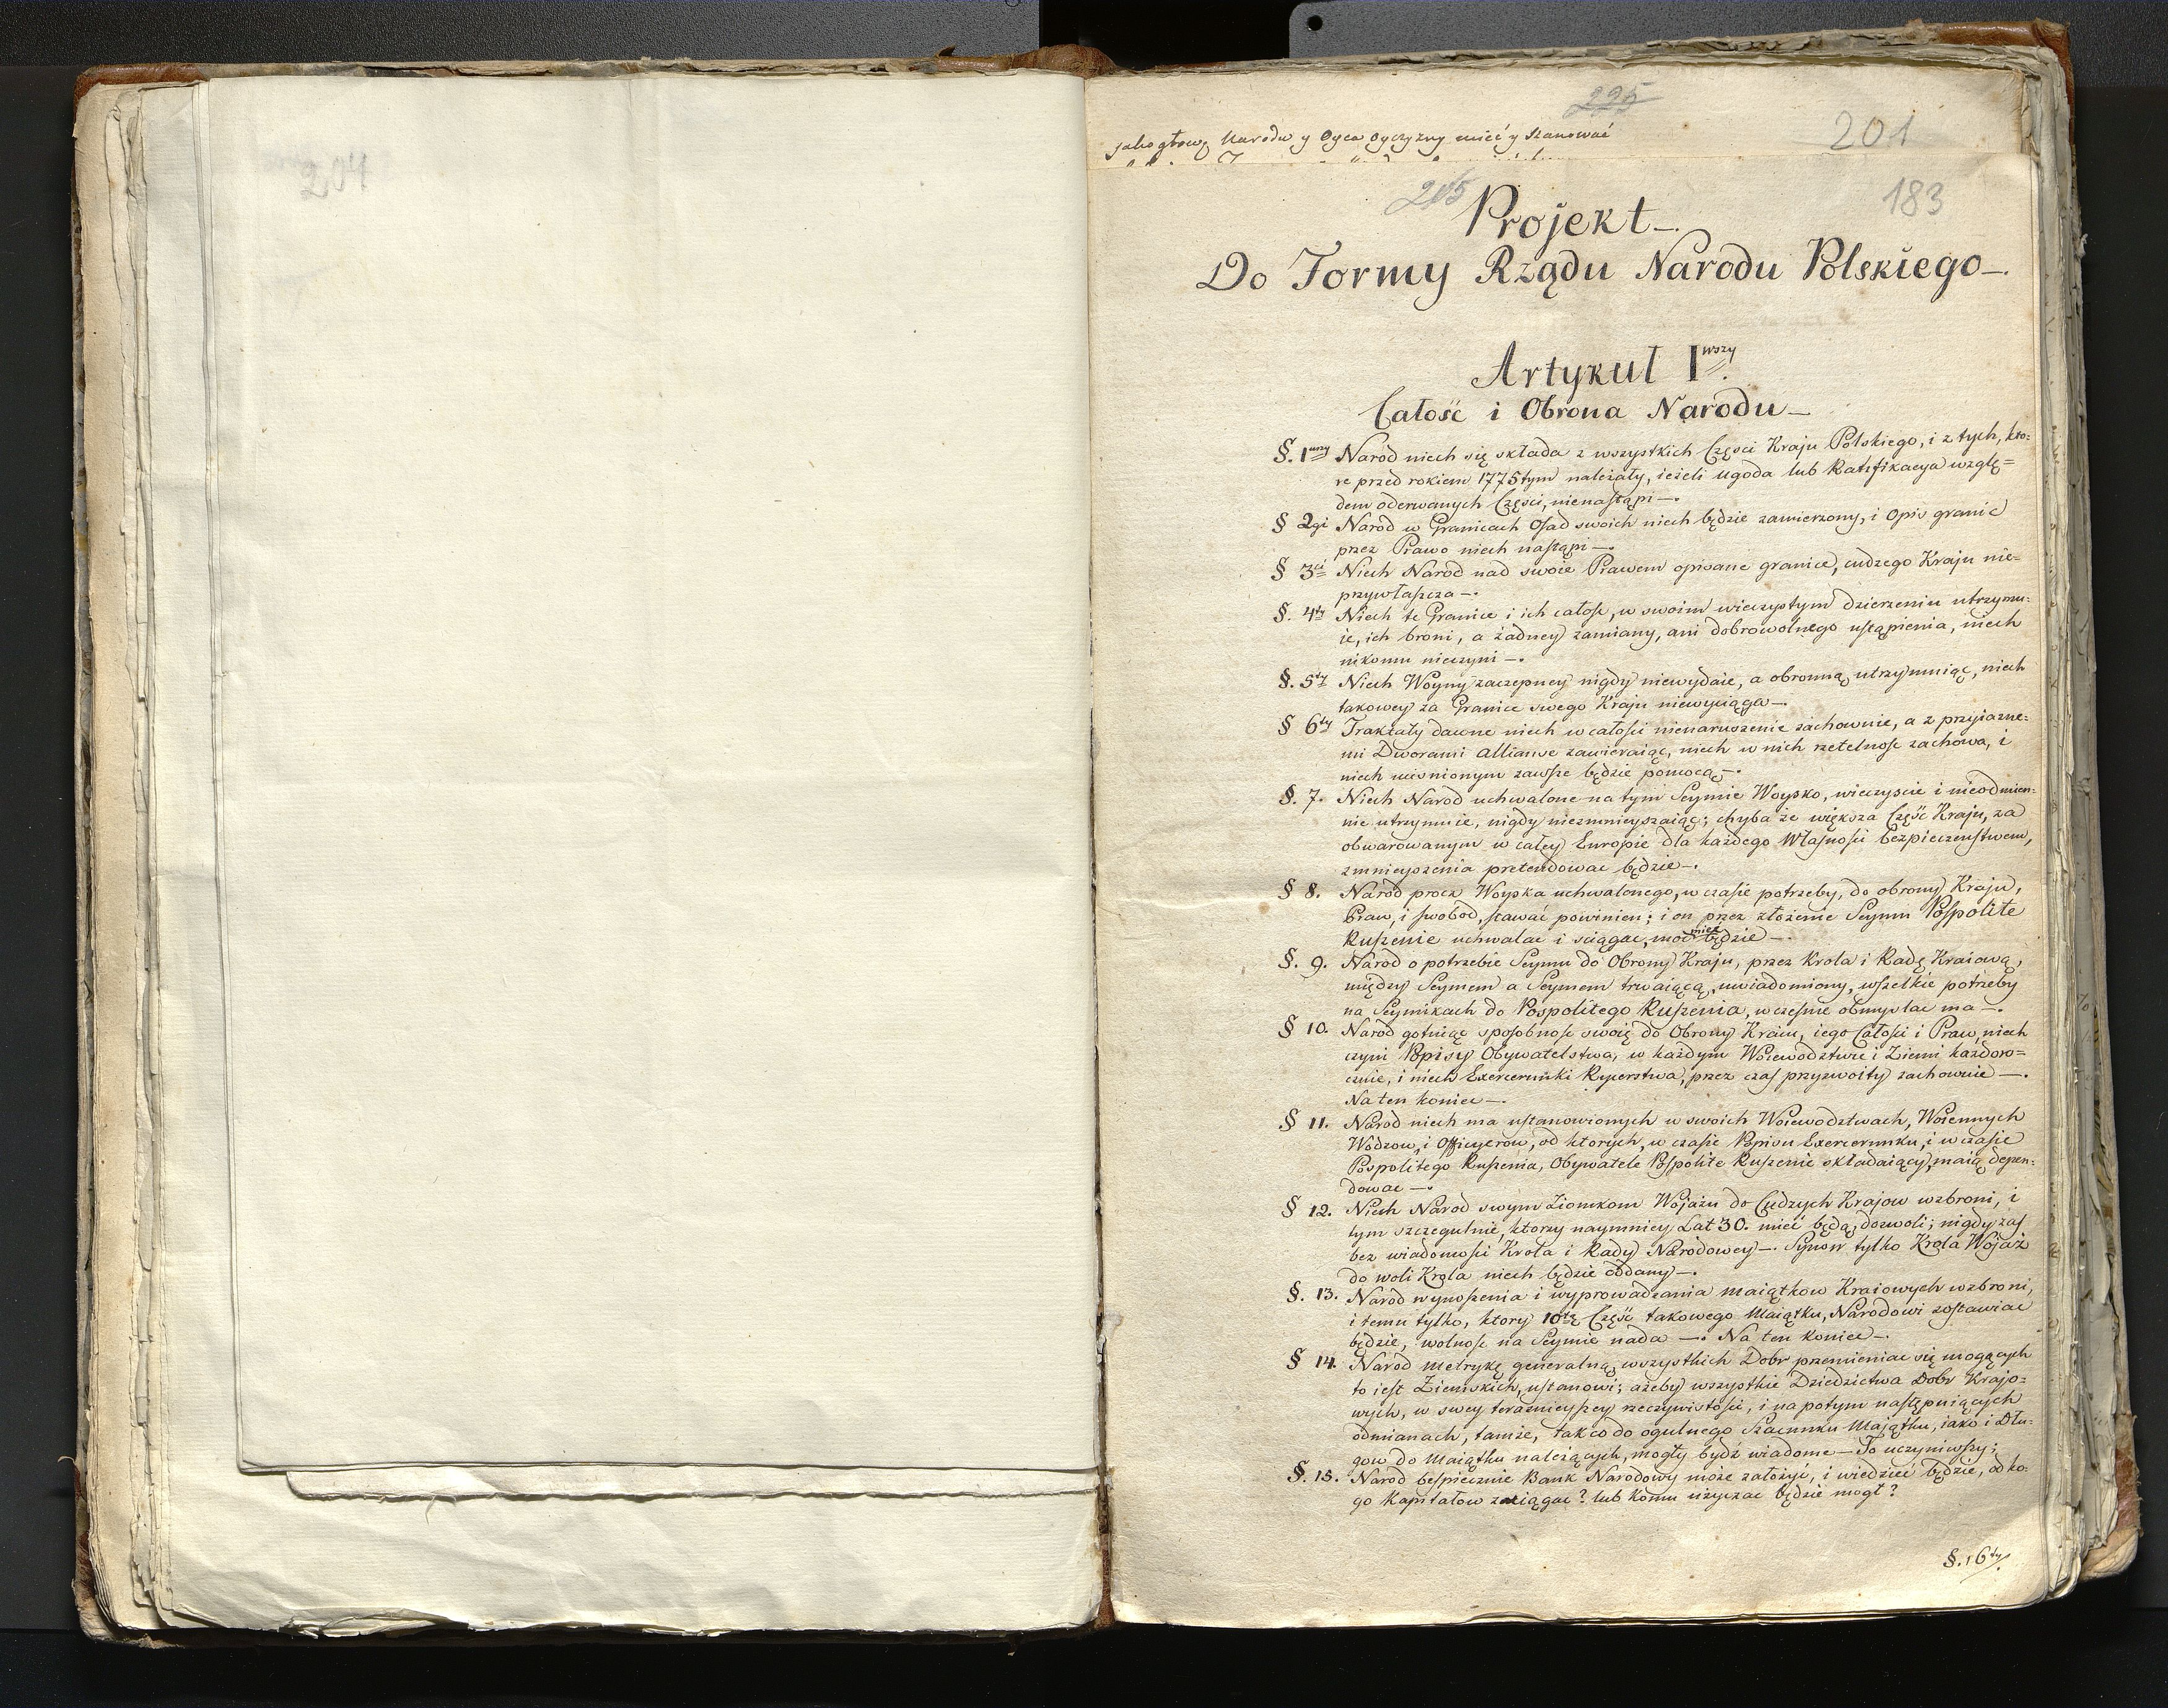 204
225
201
jako głowę Narodu y Oyca Oyczyzny mieć y Szanować
205
183
Projekt—.
Do Formy Rządu Narodu Polskiego—.
Artykuł Iwszy.
Całość i Obrona Narodu—
§. 1wszy Naród niech się składa z wszystkich Części Kraju Polskiego, i z tych, kto=
re przed rokiem 1775tym należały, ieżeli ugoda lub Ratifikacya wzglę=
dem oderwanych Części, nienastąpi—.
§ 2gi Naród w Granicach Osad swoich niech będzie zamierzony, i Opis granic
przez Prawo niech nastąpi—.
§ 3ci Niech Naród nad swoie Prawem opisane granice, cudzego Kraju nie=
przywłaszcza—.
§. 4ty Niech te Granice i ich całość, w swoim wieczystym dzierżeniu utrzymu=
ie, ich broni, a żadney zamiany, ani dobrowolnego ustąpienia, niech
nikomu nieczyni—.
§. 5ty Niech Woyny zaczepney nigdy niewydaie, a obronną utrzymuiąc, niech
takowey za Granice swego Kraju niewyciąga—.
§ 6ty Traktaty dawne niech w całości nienaruszenie zachowuie, a z przyiazne=
mi Dworami Alliance zawieraiąc, niech w nich rzetelność zachowa, i
niech uciśnionym zawsze będzie pomocą—.
§. 7. Niech Naród uchwalone na tym Seymie Woysko, wieczyście i nieodmien=
nie utrzymuie, nigdy niezmnieyszaiąc; chyba że większa Część Kraju, za
obwarowanym w całey Europie dla każdego Własności bezpieczeństwem,
zmnieyszenia pretendować będzie—.
§ 8. Naród procz Woyska uchwalonego, w czasie potrzeby, do obrony Kraju,
Praw, i swobod, stawać powinien; i on przez złożenie Seymu Pospolite
Ruszenie uchwalać i sciągac, moc mieć będzie—.
§. 9. Naród o potrzebie Seymu do Obrony Kraju, przez Krola i Radę Kraiową,
między Seymem a Seymem trwaiącą, uwiadomiony, wszelkie potrzeby
na Seymikach do Pospolitego Ruszenia, wcześnie obmyslac ma—.
§ 10. Naród gotuiąc sposobność swoię do Obrony Kraiu, iego Całości i Praw, niech
czyni Popisy Obywatelstwa, w każdym Woiewodztwie i Ziemi każdoro=
cznie, i niech Exercerunki Rycerstwa, przez czas przyzwoity zachowuie—.
Na ten koniec—.
§ 11. Naród niech ma ustanowionych w swoich Woiewodztwach, Woiennych
Wodzow, i Officyerow, od ktorych, w czasie Popisu Exercerunku, i w czasie
Pospolitego Ruszenia, Obywatele Pospolite Ruszenie składaiący, maią depen=
dować—.
§ 12. Niech Naród swym Ziomkom Wojażu do Cudzych Krajow wzbroni, i
tym szczegulnie, ktorzy naymniey Lat 30. mieć będą, dozwoli; nigdy zaś
bez wiadomości Krola i Rady Narodowey—. Synow tylko Krola Wojaż
do woli Krola niech będzie oddany—.
§. 13. Naród wynoszenia i wyprowadzania maiątkow Kraiowych wzbroni,
i temu tylko, ktory 10tą Część takowego Maiątku, Narodowi zostawiac
będzie, wolność na Seymie nada—. Na ten koniec—.
§ 14. Naród Metrykę generalną wszystkich Dobr przemieniac się mogących
to iest Ziemskich, ustanowi; ażeby wszystkie Dziedzictwa Dobr Krajo=
wych, w swey teraznieyszey rzeczywistości, i na potym następuiących
odmianach, tamże, tak co do ogulnego Szacunku Majątku, iako i Dłu=
gow do Maiątku należących, mogły bydź wiadome—To uczyniwszy;
§. 15. Naród bespiecznie Bank Narodowy może założyć, i wiedzieć będzie, od ko=
go Kapitałow zaciągac? lub komu użyczac będzie mogł?
§. 16ty.